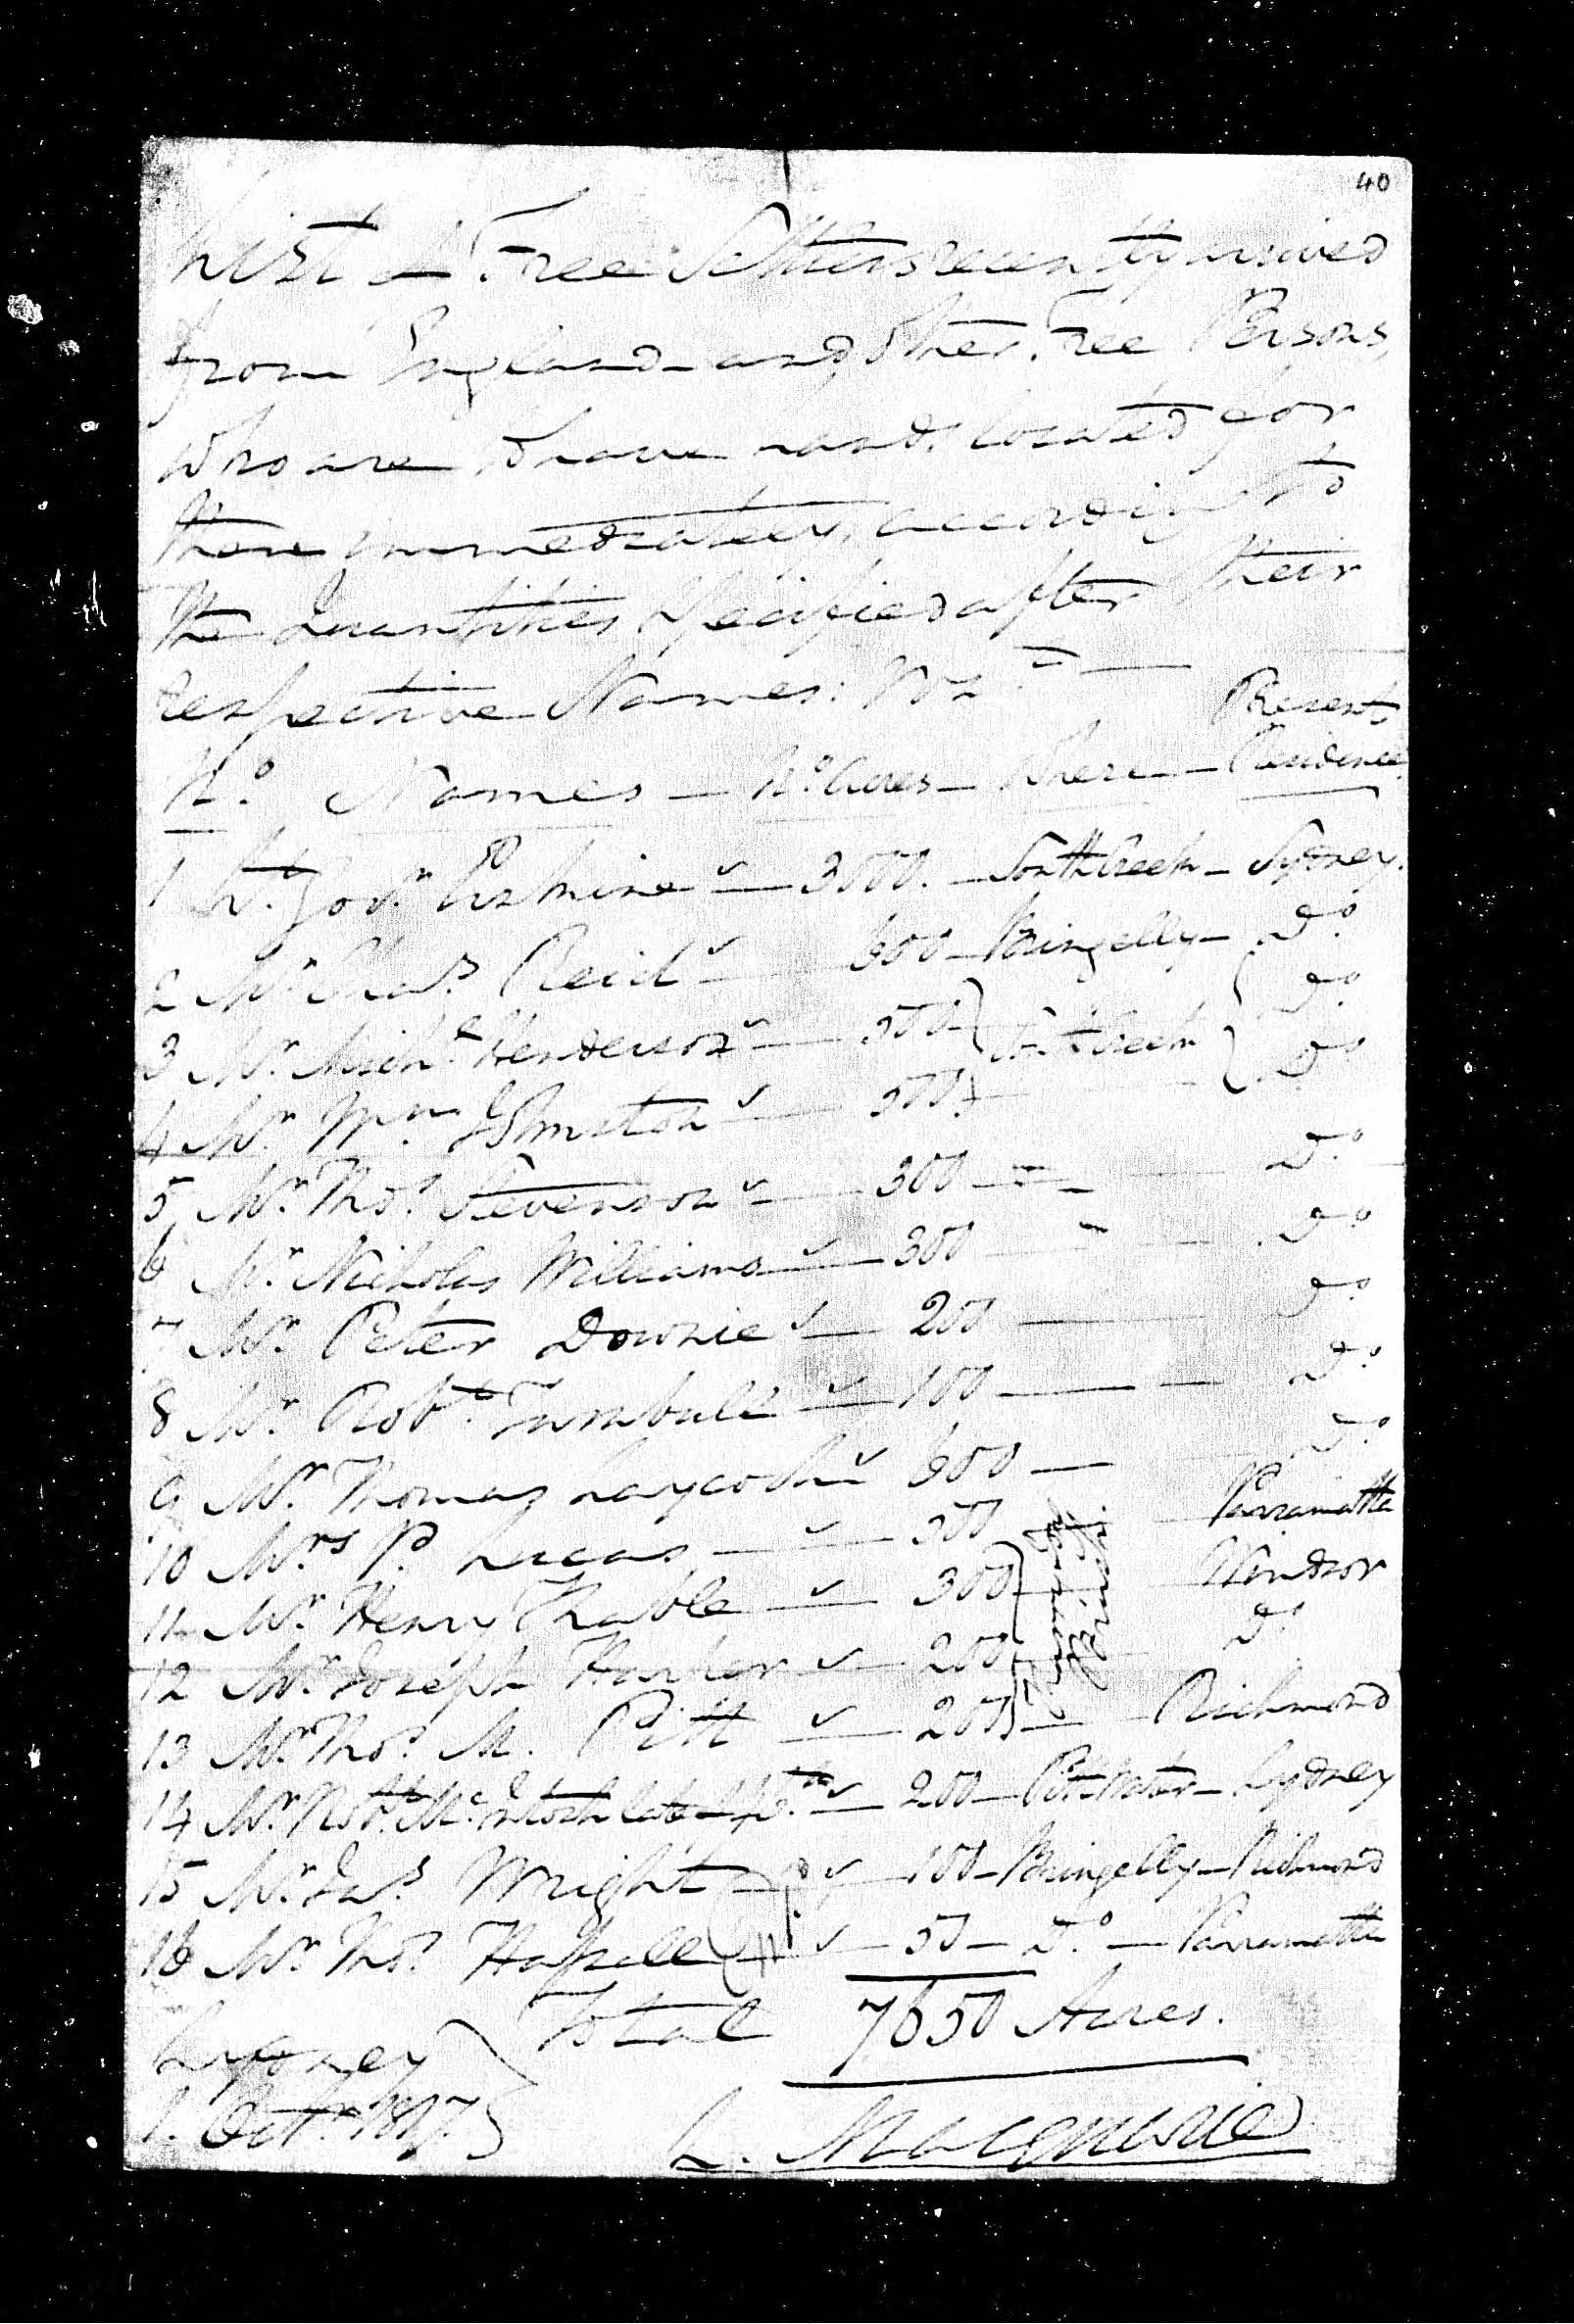 40
List of Free Settlers recently arrived
from England and Other Free Persons,
who are to have Lands located for
them immediately, according to
the Quantities specified after their
respective Names; Vizt.
Present
No. Names — No. Acres — Where — Residence
1 Lt. Govr. Erskine — 3000. — South Creek — Sydney.
2 Mr. Chas. Reid — 600 — Bringelly — Do.
3 Mr. Michl. Henderson — 500 South Creek Do.
4 Mr. Wm. Johnston — 500 Do.
5 Mr. Thos. Stevenson — 300 — Do.
6 Mr. Nicholas Williams — 300 Do.
7 Mr. Peter Downie — 200 — Do.
8 Mr. Robt. Turnbull — 100 — Do.
9 Mr. Thomas Laycock 600 — Do.
10 Mrs. P. Lucas — 500 — Parramatta
11 Mr. Henry Kable — 300 Windsor
12 Mr. Joseph Harper — 200 Do.
13 Mr. Thos. M. Pitt — 200 — Richmond
14 Mr. Robt. McIntosh late — 200 — Pitt Water — Sydney
15 Mr. Jas. Wright — 100 — Bringelly — Richmond
16 Mr. Thos. Hassall — 50 — Do. — Parramatta
Total 7650 Acres.
Sydney
1. Octr. 1817.
L. Macquarie